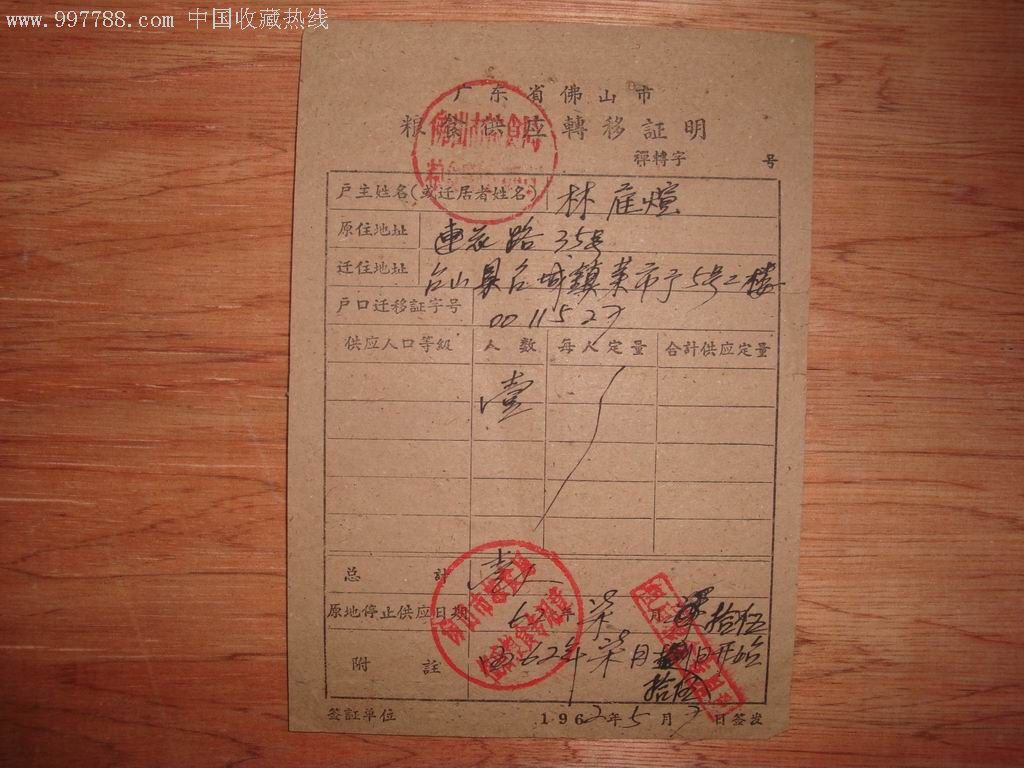 www.997788.com 中国收藏热线
广东省佛山市
粮食供应轉移証明
粮轉字 号
戶主姓名(或迁居者姓名) 林
原住地址 蓮花路35号
迁住地址 台山县台城鎮菜市于5号二楼
戶口迁移証字号 001152
供应人口等級 人数 每人定量 合計供应定量
壹
总計 壹人
原地停止供应日期 62年柒月拾伍
附註 62年柒月 日开始
拾伍
签証单位 1962年5月 日签发